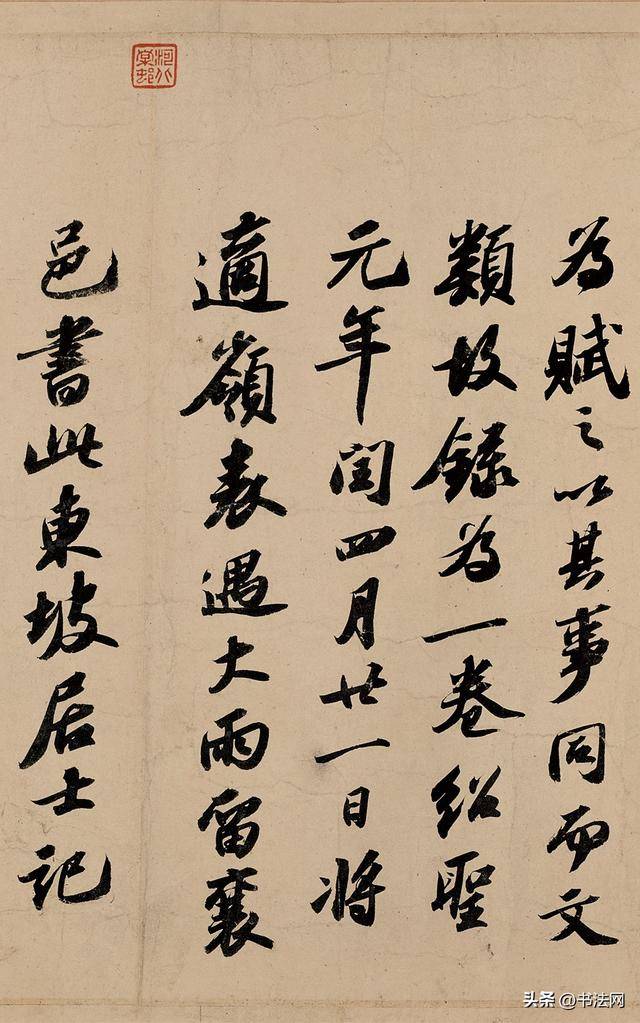 為賦之以其事同而文
類故錄為一卷紹聖
元年閏四月廿一日將
適嶺表遇大雨留襄
邑書此東坡居士記
头条 @书法网